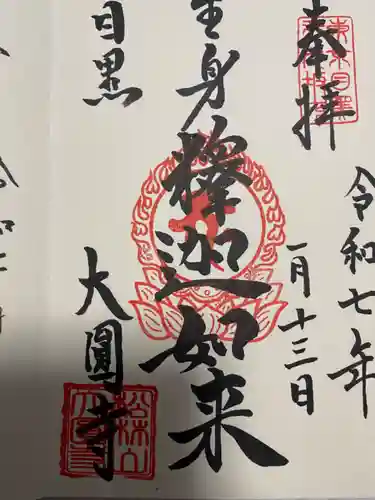 奉拝
令和七年
一月十三日
生身
釋迦如来
目黒
大圓寺